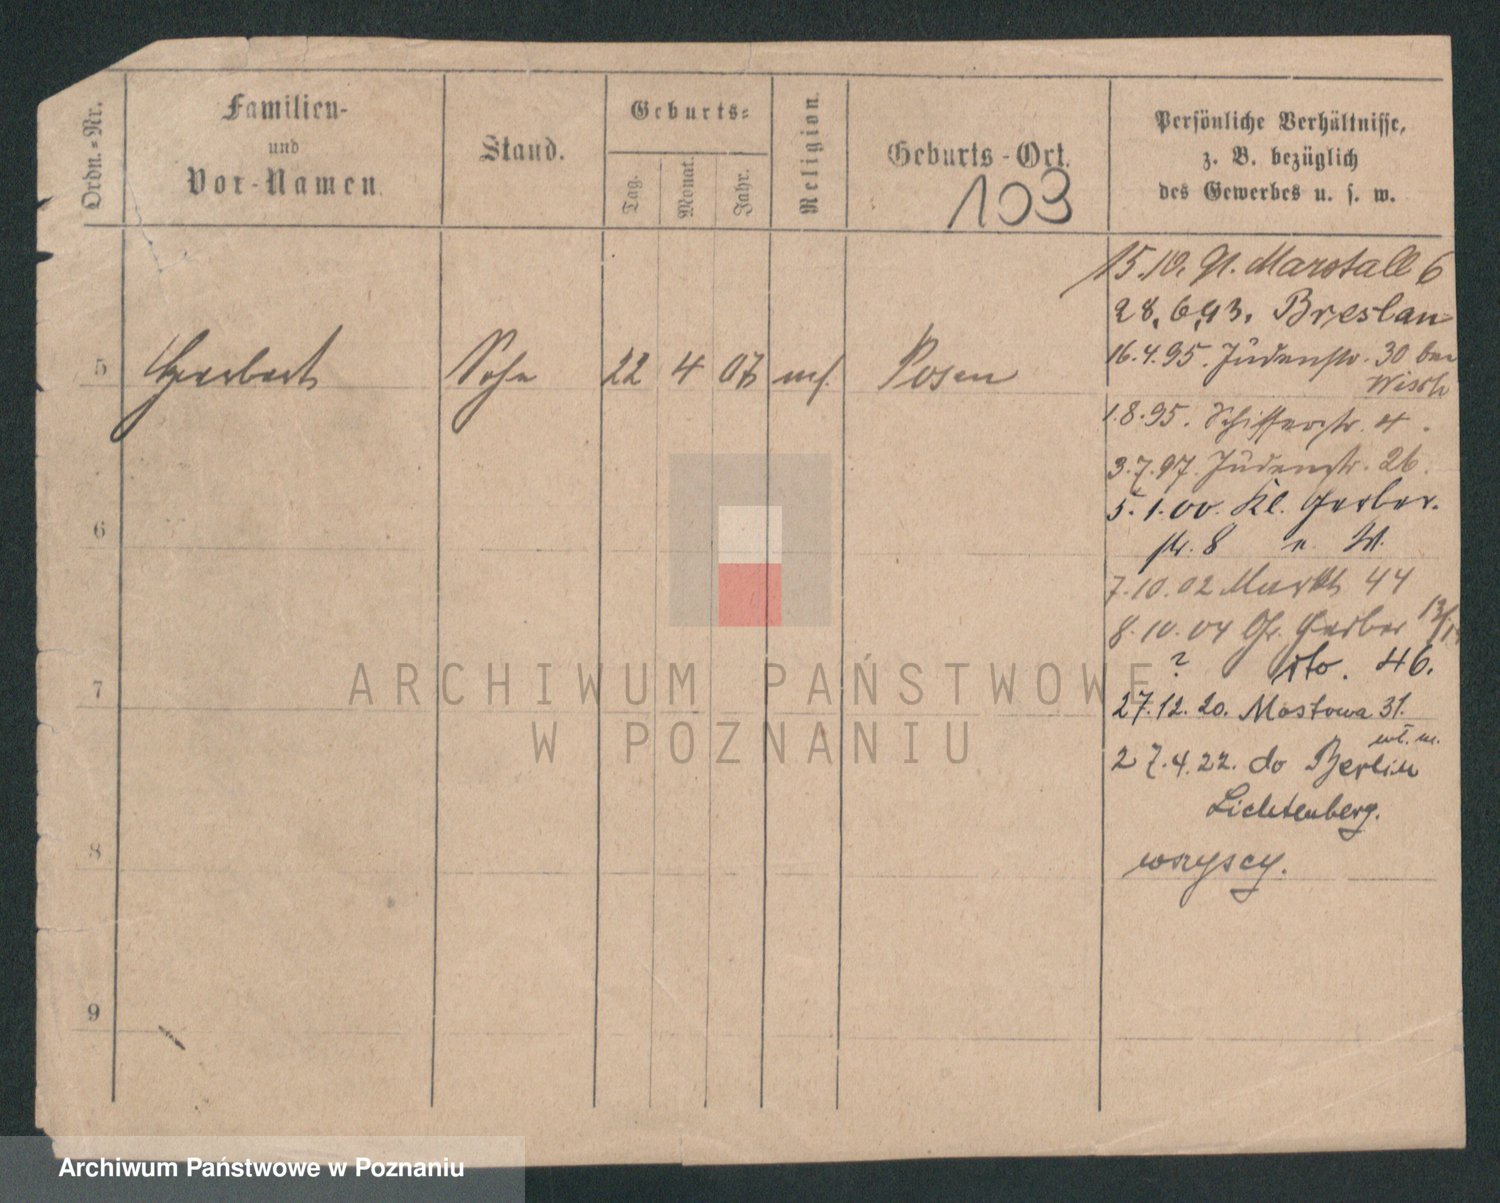 Ordn.-Nr.
Familien-
und
Vor-Namen
Stand.
Geburts-
Tag.
Monat.
Jahr.
Religion.
Geburts-Ort.
103
Persönliche Verhältnisse,
z. B. bezüglich
des Gewerbes u. s. w.
5 Herbert Sohn 22 4 07 mos. Posen
6
7
8
9
15.10. 91. Marstall 6
28.6.93. Breslau
16.4.95. Judenstr. 30 bei
1.8.95. Schifferstr. 4.
3.7.97. Judenstr. 26.
5.1.00. Kl. Gerber-
str. 8 u. W.
7.10.02 Markt 44
8.10.04 Gr. Gerber
? dto. 46.
27.12.20. Mostowa 31.
wł. m.
27.4.22. do Berlin
Lichtenberg.
wszyscy.
ARCHIWUM PAŃSTWOWE
W POZNANIU
Archiwum Państwowe w Poznaniu